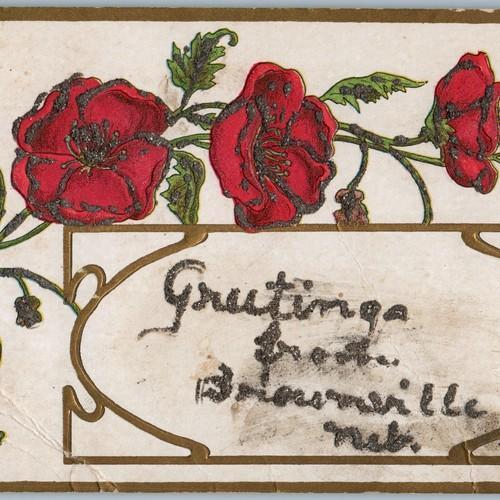 Greetings
from
Brownville
Neb.